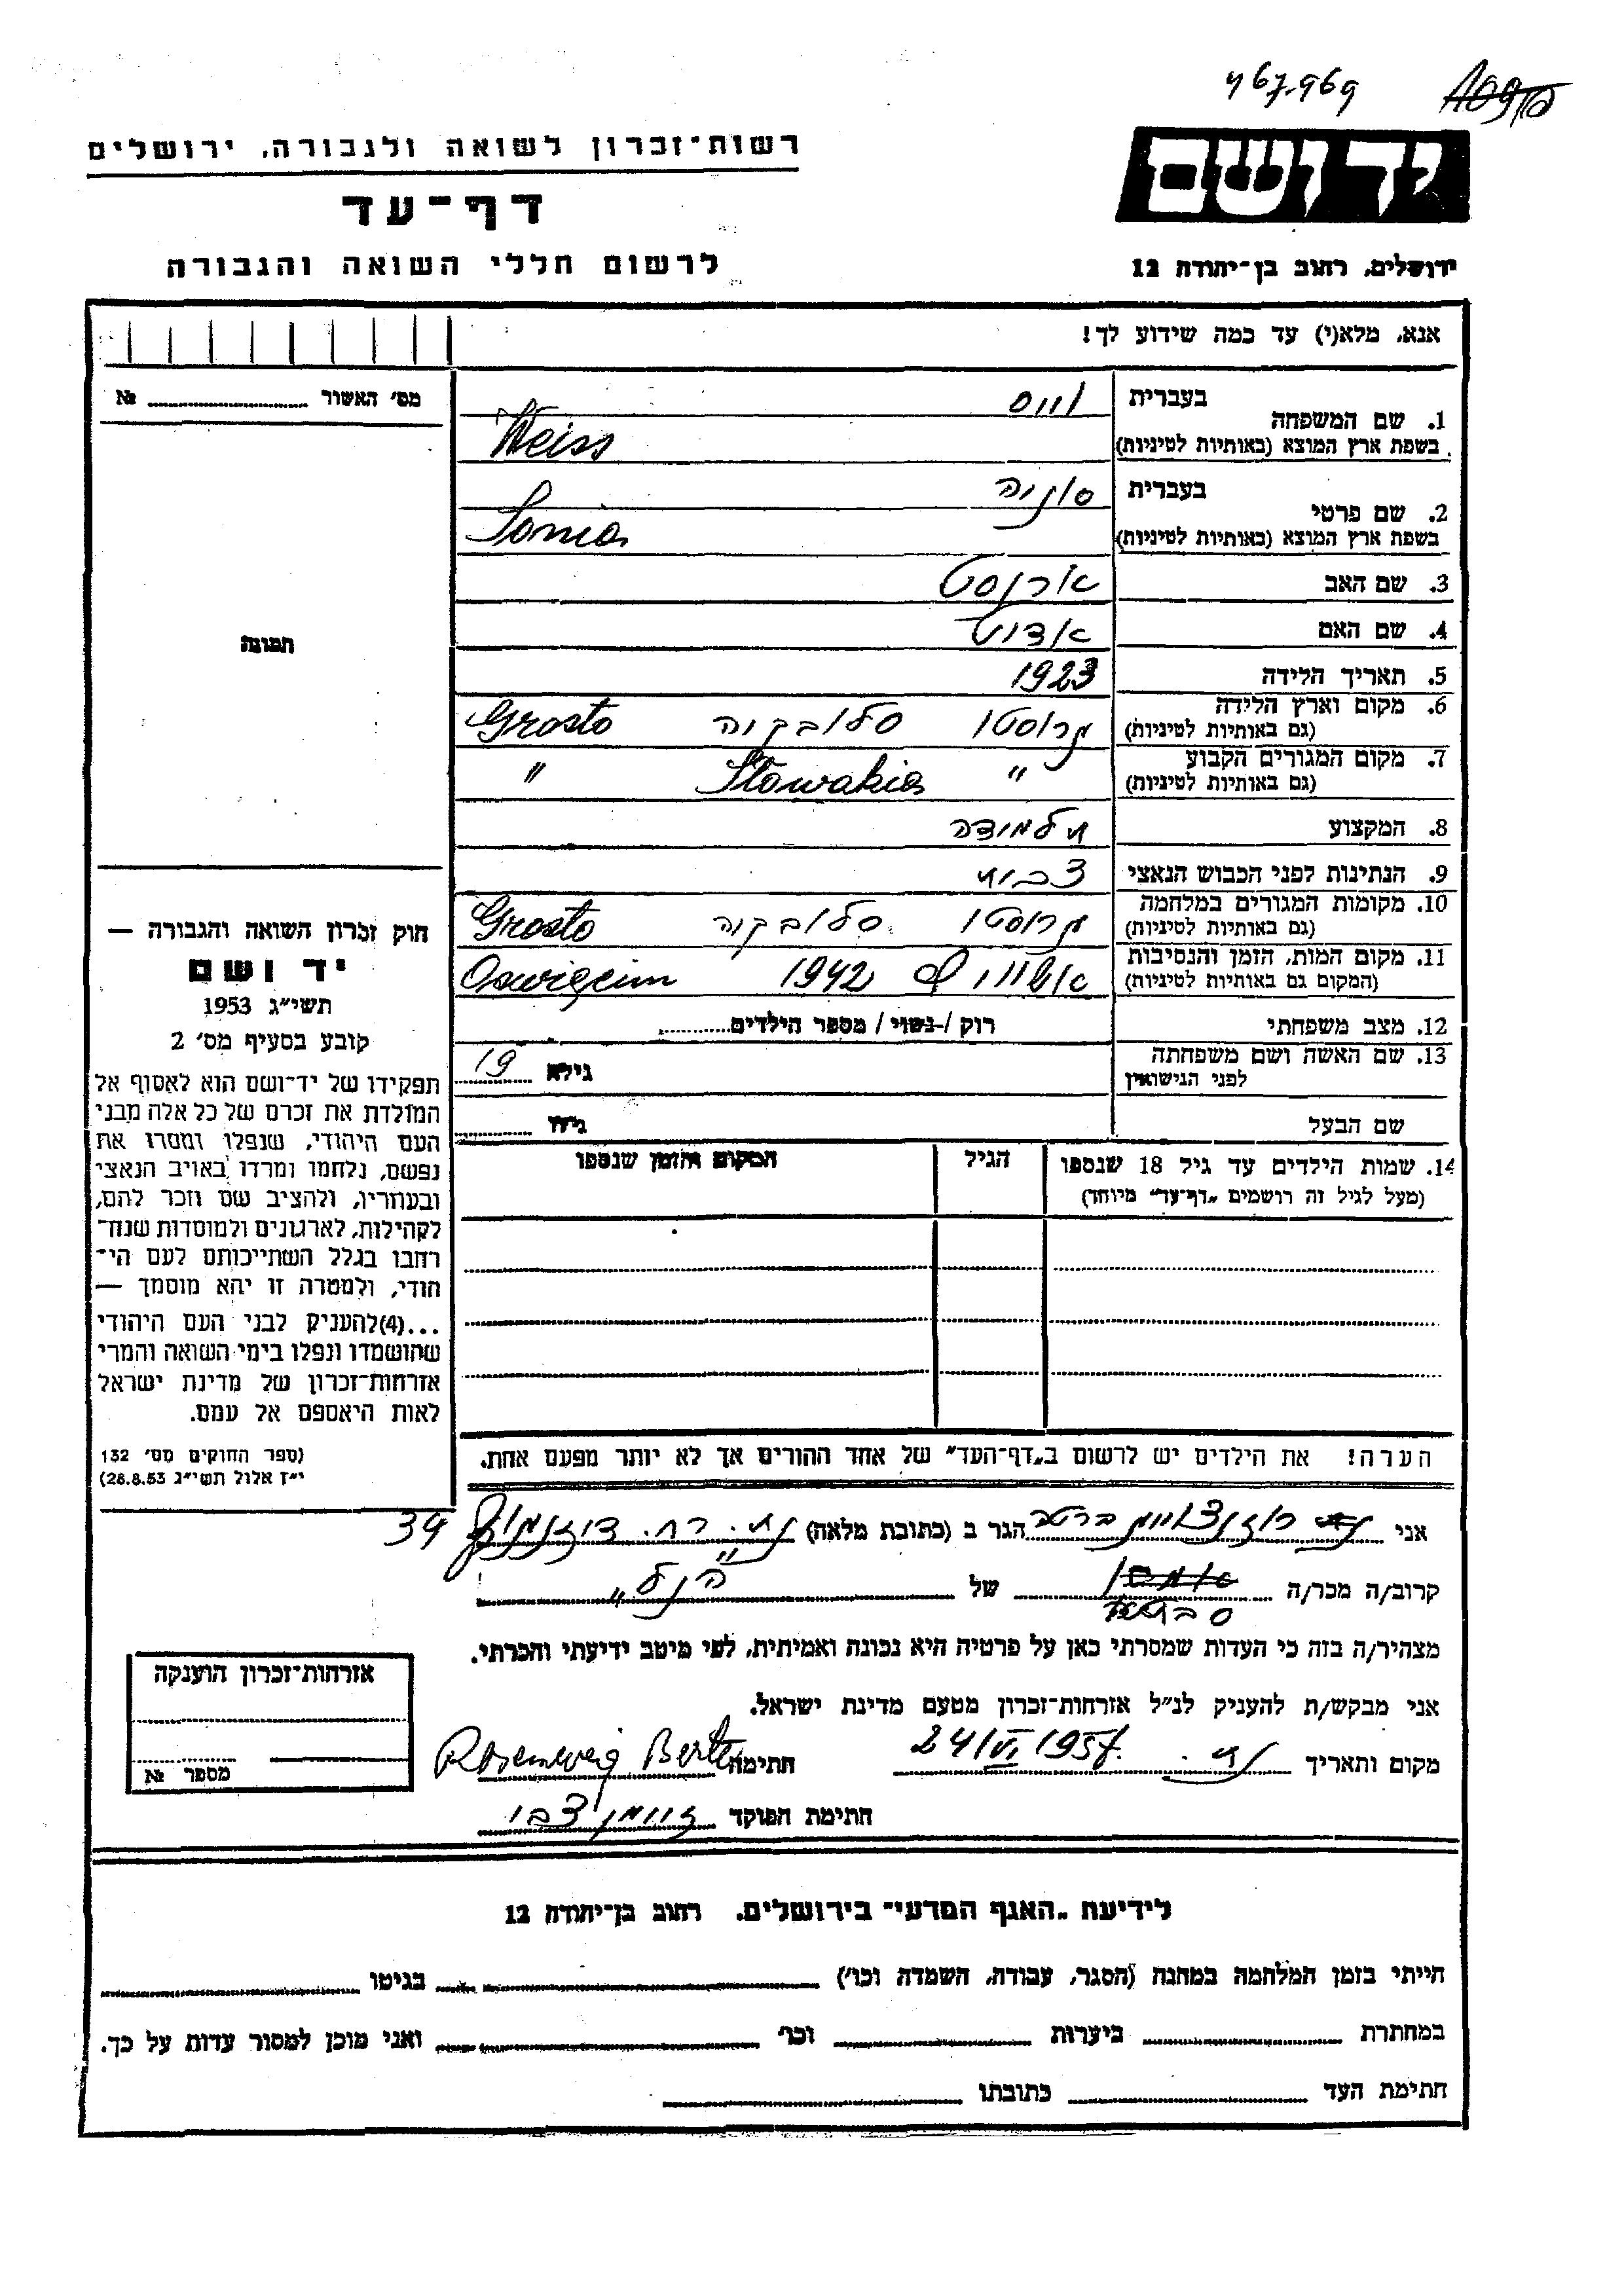 467.969
רשות־זכרון לשואה ולגבורה, ירושלים
יד ושם
דף־עד
לרשום חללי השואה והגבורה
ירושלים, רחוב בן־יהודה 12
אנא, מלא(י) עד כמה שידוע לך!
מס׳ האשור № 
1. שם המשפחה בעברית ווייס
בשפת ארץ המוצא (באותיות לטיניות) Weiss
2. שם פרטי בעברית סוניה
בשפת ארץ המוצא (באותיות לטיניות) Sonia
3. שם האב ארנסט
4. שם האם אדית
5. תאריך הלידה 1923
6. מקום וארץ הלידה (גם באותיות לטיניות) גרוסטו סלובקיה Grosto
7. מקום המגורים הקבוע (גם באותיות לטיניות) " Slowakia "
8. המקצוע תלמידה
9. הנתינות לפני הכבוש הנאצי צ׳כית
10. מקומות המגורים במלחמה (גם באותיות לטיניות) גרוסטו סלובקיה Grosto
11. מקום המות, הזמן והנסיבות (המקום גם באותיות לטיניות) אושוויץ 1942 Oswięcim
12. מצב משפחתי רוק / נשוי / מספר הילדים
13. שם האשה ושם משפחתה לפני הנישואין גילא 19
שם הבעל גילו
14. שמות הילדים עד גיל 18 שנספו (מעל לגיל זה רושמים „דף־עד״ מיוחד) הגיל המקום והזמן שנספו
תמונה
חוק זכרון השואה והגבורה —
יד ושם
תשי״ג 1953
קובע בסעיף מס׳ 2
תפקידו של יד־ושם הוא לאסוף אל
המולדת את זכרם של כל אלה מבני
העם היהודי, שנפלו ומסרו את
נפשם, נלחמו ומרדו באויב הנאצי
ובעוזריו, ולהציב שם וזכר להם,
לקהילות, לארגונים ולמוסדות שנח־
רבו בגלל השתייכותם לעם הי־
הודי, ולמטרה זו יהא מוסמך —
...(4) להעניק לבני העם היהודי
שהושמדו ונפלו בימי השואה והמרי
אזרחות־זכרון של מדינת ישראל
לאות היאספם אל עמם.
(ספר החוקים מס׳ 132
י״ז אלול תשי״ג 28.8.53)
הערה! את הילדים יש לרשום ב„דף־העד״ של אחד ההורים אך לא יותר מפעם אחת.
אני רוזנצוייג ברטה הגר ב (כתובת מלאה) ת. רח. דיזנגוף 39
קרוב/ה מכר/ה של "הנ״ל"
מצהיר/ה בזה כי העדות שמסרתי כאן על פרטיה היא נכונה ואמיתית, לפי מיטב ידיעתי והכרתי.
אני מבקש/ת להעניק לנ״ל אזרחות־זכרון מטעם מדינת ישראל.
מקום ותאריך ת. 24/VI 1957 חתימה Rosenzweig Berta
חתימת הפוקד זיימן צבי
אזרחות־זכרון הוענקה
מספר №
לידיעת „האגף המדעי״ בירושלים, רחוב בן־יהודה 12
הייתי בזמן המלחמה במחנה (הסגר, עבודה, השמדה וכו׳) בגיטו
במחתרת ביערות וכו׳ ואני מוכן למסור עדות על כך.
חתימת העד כתובתו